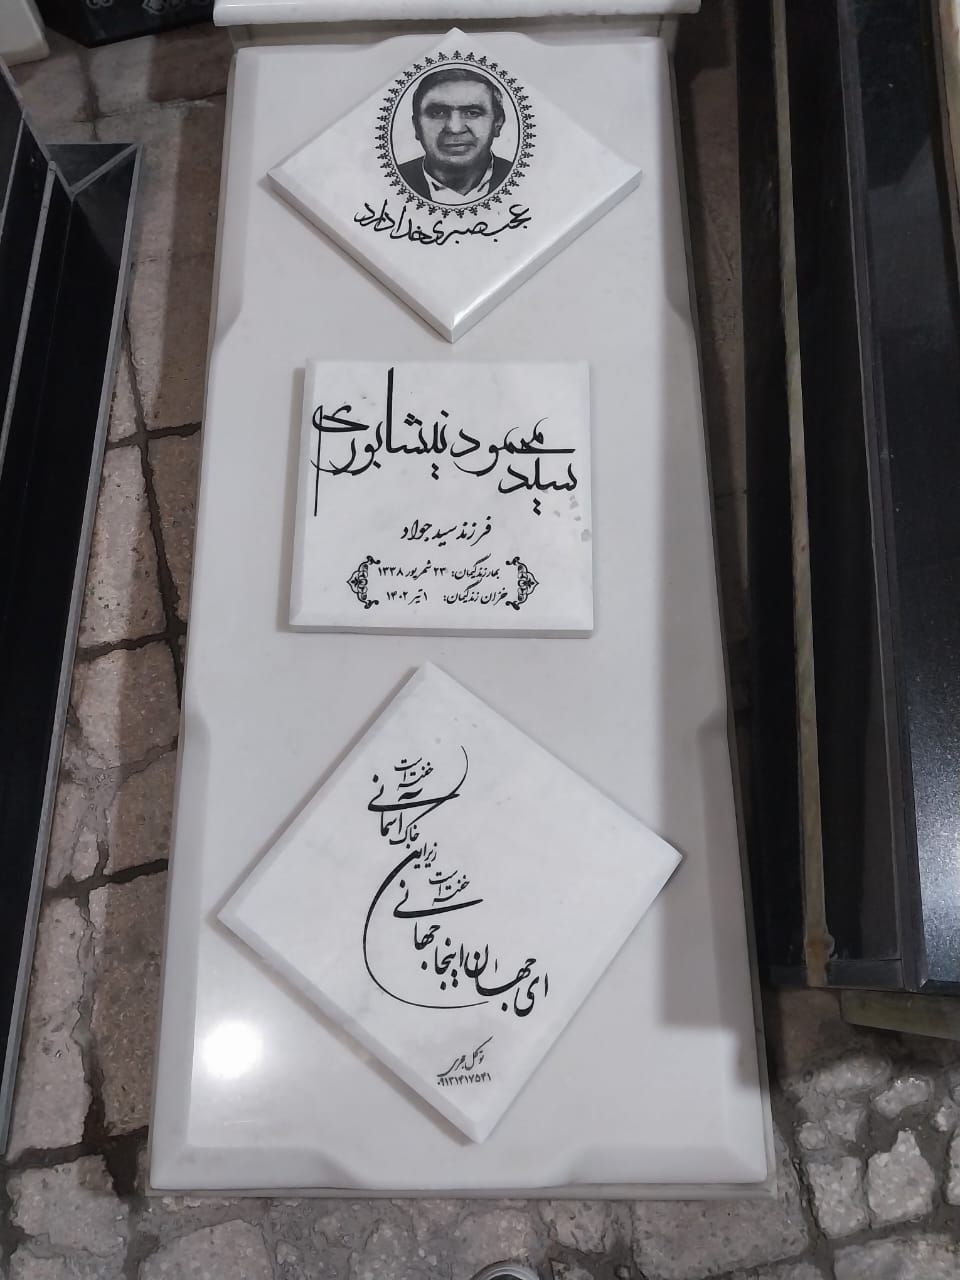 عجب صبری خدا دارد
سید محمود نیشابوری
فرزند سید جواد
بهار زندگیمان: ۲۳ شهریور ۱۳۳۸
خزان زندگیمان: ۱ تیر ۱۴۰۲
ای جهان اینجا جهانی خفته است
زیر این خاک آسمانی خفته است
توکل حجری
۰۹۱۳۱۴۱۷۵۴۱